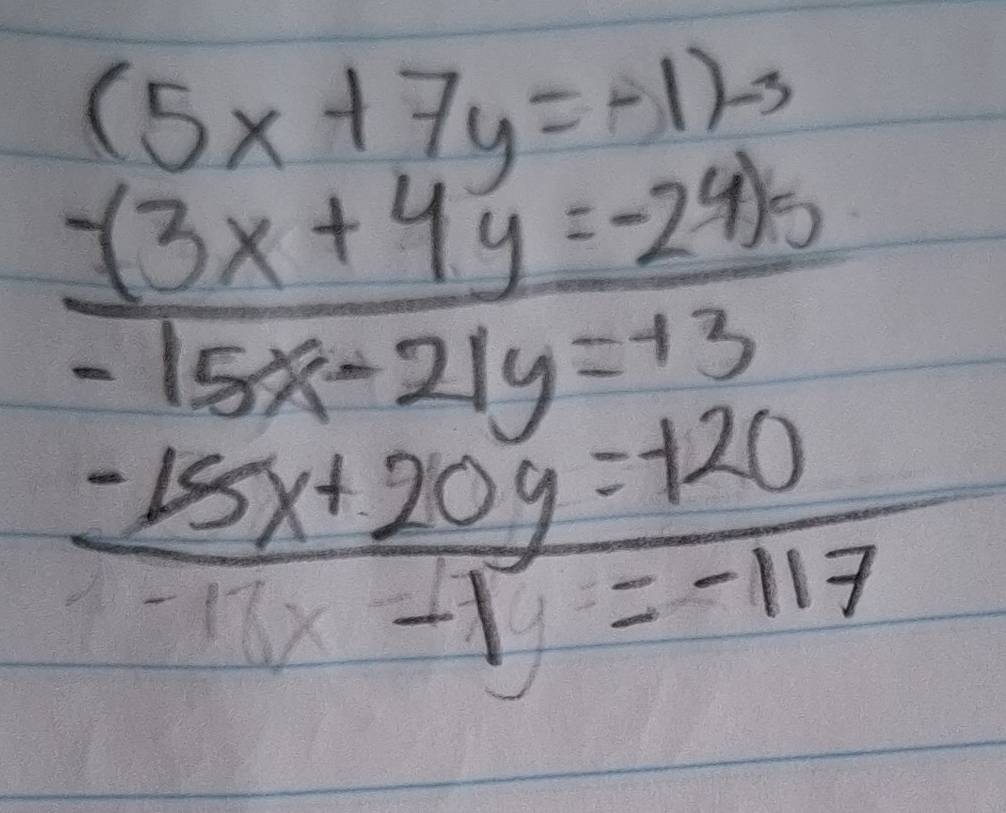 (5x + 7y = -1)-3
-(3x + 4y = -24)5
-15x - 21y = +3
-15x + 20y = +120
-1 = -117